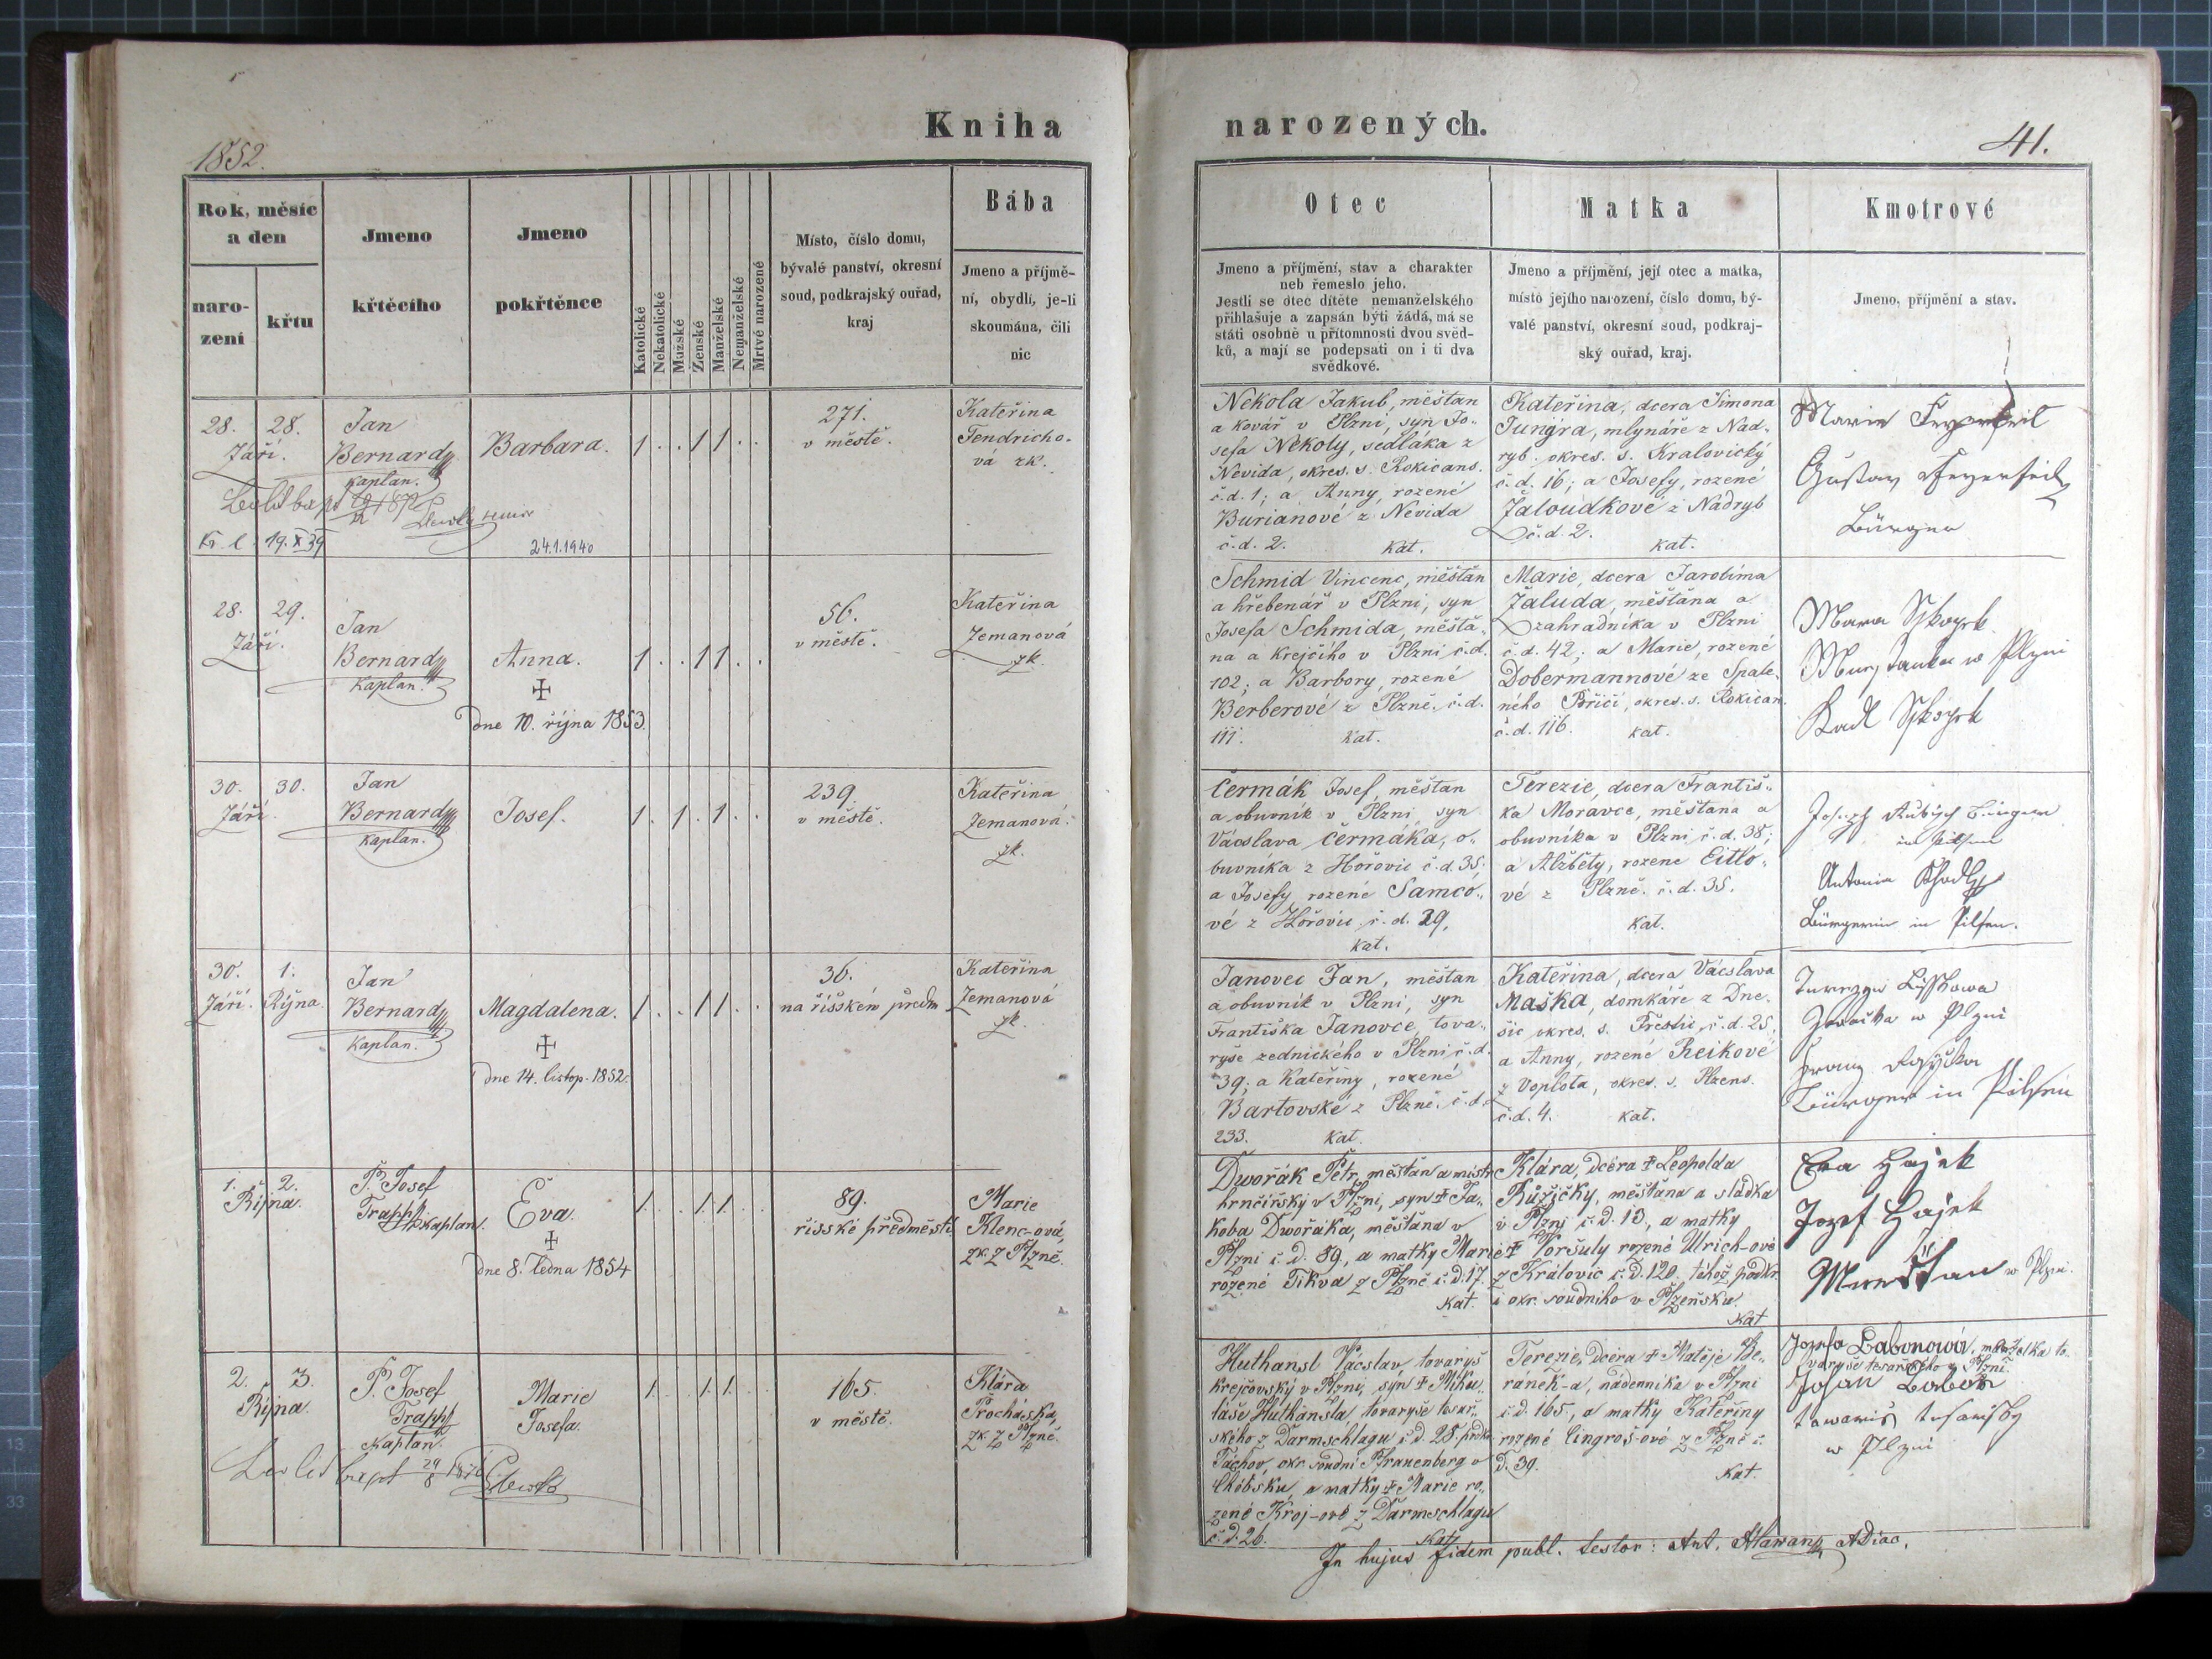 Kniha
narozených.
1852.
41.
Rok, měsíc
a den
naro-
zení
křtu
Jmeno
křtěcího
Jmeno
pokřtěnce
Katolické
Nekatolické
Mužské
Ženské
Manželské
Nemanželské
Mrtvé narozené
Místo, číslo domu,
bývalé panství, okresní
soud, podkrajský ouřad,
kraj
Bába
Jmeno a příjmě-
ní, obydlí, je-li
skoumána, čili
nic
Otec
Jmeno a příjmění, stav a charakter
neb řemeslo jeho.
Jestli se otec dítěte nemanželského
přihlašuje a zapsán býti žádá, má se
státi osobně u přítomnosti dvou svěd-
ků, a mají se podepsati on i ti dva
svědkové.
Matka
Jmeno a příjmění, její otec a matka,
místo jejího narození, číslo domu, bý-
valé panství, okresní soud, podkraj-
ský ouřad, kraj.
Kmotrové
Jmeno, příjmění a stav.
28. 28.
Září.
Jan
Bernard
kaplan.
Barbara.
1 . . 1 1 . .
271.
v městě.
Kateřina
Fendricho-
vá zk.
Kř. l. 19.X39
24.1.1940
Nekola Jakub, měštan
a kovář v Plzni, syn Jo-
sefa Nekoly, sedláka z
Nevida, okres. s. Rokicans.
č.d. 1; a Anny, rozené
Burianové z Nevida
č.d. 2. kat.
Kateřina, dcera Šimona
Jungra, mlynáře z Nad-
ryb. okres. s. Kralovický
č.d. 16; a Josefy, rozené
Žaloudkové z Nadryb
č.d. 2. kat.
Marie
Gustav
Bürger
28. 29.
Září.
Jan
Bernard
kaplan.
Anna.
✝
Dne 10. října 1853.
1 . . 1 1 . .
56.
v městě.
Kateřina
Zemanová
zk.
Schmid Vincenc, měštan
a hřebenář v Plzni, syn
Josefa Schmida, měšťa-
na a krejčího v Plzni č.d.
102; a Barbory, rozené
Berberové z Plzně. č.d.
111. kat.
Marie, dcera Jarolíma
Žaluda, měštana a
zahradníka v Plzni
č.d. 42; a Marie, rozené
Dobermannové ze Spále-
ného Poříčí, okres. s. Rokican.
č.d. 116. kat.
30. 30.
Září.
Jan
Bernard
kaplan.
Josef.
1 . 1 . 1 . .
239.
v městě.
Kateřina
Zemanová.
zk.
Čermák Josef, měštan
a obuvník v Plzni, syn
Václava Čermáka, o-
buvníka z Hořovic č.d. 35;
a Josefy, rozené Samco-
vé z Hořovic. č.d. 29,
kat.
Terezie, dcera Františ-
ka Moravce, měštana a
obuvníka v Plzni č.d. 38;
a Alžběty, rozené Eitlo-
vé z Plzně. č.d. 35.
kat.
Joseph Bürger
in Pilsen
Antonia
Bürgerin in Pilsen.
30. 1.
Září. Října.
Jan
Bernard
kaplan.
Magdalena.
✝
Dne 14. listop. 1852.
1 . . 1 1 . .
36.
na říšském předm.
Kateřina
Zemanová
zk.
Janovec Jan, měštan
a obuvník v Plzni, syn
Františka Janovce, tova-
ryše zednického v Plzni č.d.
39; a Kateřiny, rozené
Bartovské z Plzně. č.d.
233. kat.
Kateřina, dcera Václava
Maška, domkáře z Dne-
šic okres. s. Přestic, č.d. 25,
a Anny, rozené Reikové
z Voplota, okres. s. Plzens.
č.d. 4. kat.
w Plzni
Franz
Bürger in Pilsen
1. 2.
Října.
P. Josef
Trappl
kaplan.
Eva.
✝
Dne 8. ledna 1854
1. . . 1. 1. . .
89.
říšské předměstí.
Marie
Klenc-ová,
zk. z Plzně.
Dwořák Petr, měšťan a mistr
hrnčířský v Plzni, syn ✝ Ja-
koba Dwořáka, měšťana v
Plzni č.d. 89, a matky Marie
rozené Tikva z Plzně č.d. 17.
kat.
Klára, dcéra ✝ Leopolda
Růžičky, měšťana a sládka
v Plzni č.d. 13, a matky
✝ Voršuly rozené Ulrich-ové
z Královic č.d. 120. téhož podkr.
i okr. soudního v Plzeňsku.
kat
Eva Hajek
Jozef Hajek
w Plzni.
2. 3.
Října.
P. Josef
Trappl
kaplan.
Marie
Josefa.
1. . . 1. 1. . .
165.
v městě.
Klára
Procházka,
zk. z Plzně.
Huthansl Václav tovaryš
krejčovský v Plzni, syn ✝ Miku-
láše Huthansla, tovaryše tesař-
ského z Darmschlagu č.d. 28. podkr.
Tachov, okr. soudní Pfrauenberg v
Chebsku, a matky ✝ Marie ro-
zené Kroj-ové z Darmschlagu
č.d. 26. kat.
Terezie, dcéra ✝ Matěje Be-
ránek-a, nádenníka v Plzni
č.d. 165., a matky Kateřiny
rozené Cingroš-ové z Plzně č.
d. 39. kat.
Jozefa Babonowá, manželka to-
varyše tesařského z Plzně.
Johan Babon
w Plzni
In hujus fidem publ. testor: Ant. Hlawan ADiac.